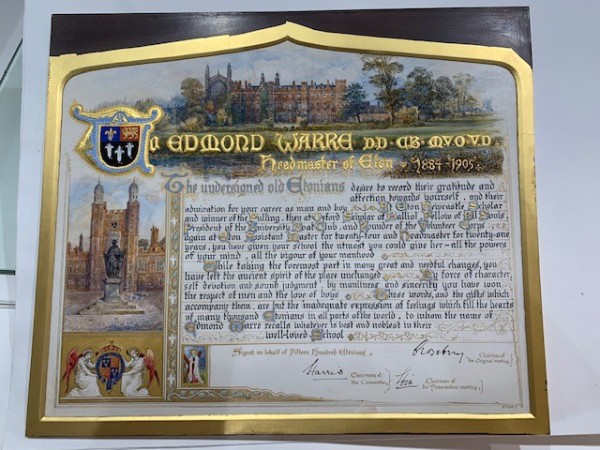 To EDMOND WARRE D.D. C.B. M.V.O. V.D.
Headmaster of Eton 1884-1905
The undersigned old Etonians desire to record their gratitude and
affection towards yourself, and their
admiration for your career as man and boy At Eton Newcastle Scholar
and winner of the Pulling, then at Oxford Scholar of Balliol, Fellow of All Souls,
President of the University Boat Club, and Founder of the Volunteer Corps
again at Eton Assistant Master for twenty-four and Headmaster for twenty-one
years, you have given your school the utmost you could give her - all the powers
of your mind, all the vigour of your manhood
While taking the foremost part in many great and needful changes, you
have left the ancient spirit of the place unchanged By force of character,
self devotion and sound judgment, by manliness and sincerity you have won
the respect of men and the love of boys These words, and the gifts which
accompany them, are but the inadequate expression of feelings which fill the hearts
of many thousand Etonians in all parts of the world, to whom the name of
Edmond Warre recalls whatever is best and noblest in their
well-loved School
Signed on behalf of Fifteen Hundred Etonians,
Rosebery Chairman of the Original meeting
Harris Chairman of the Committee,
Chairman of the Presentation meeting